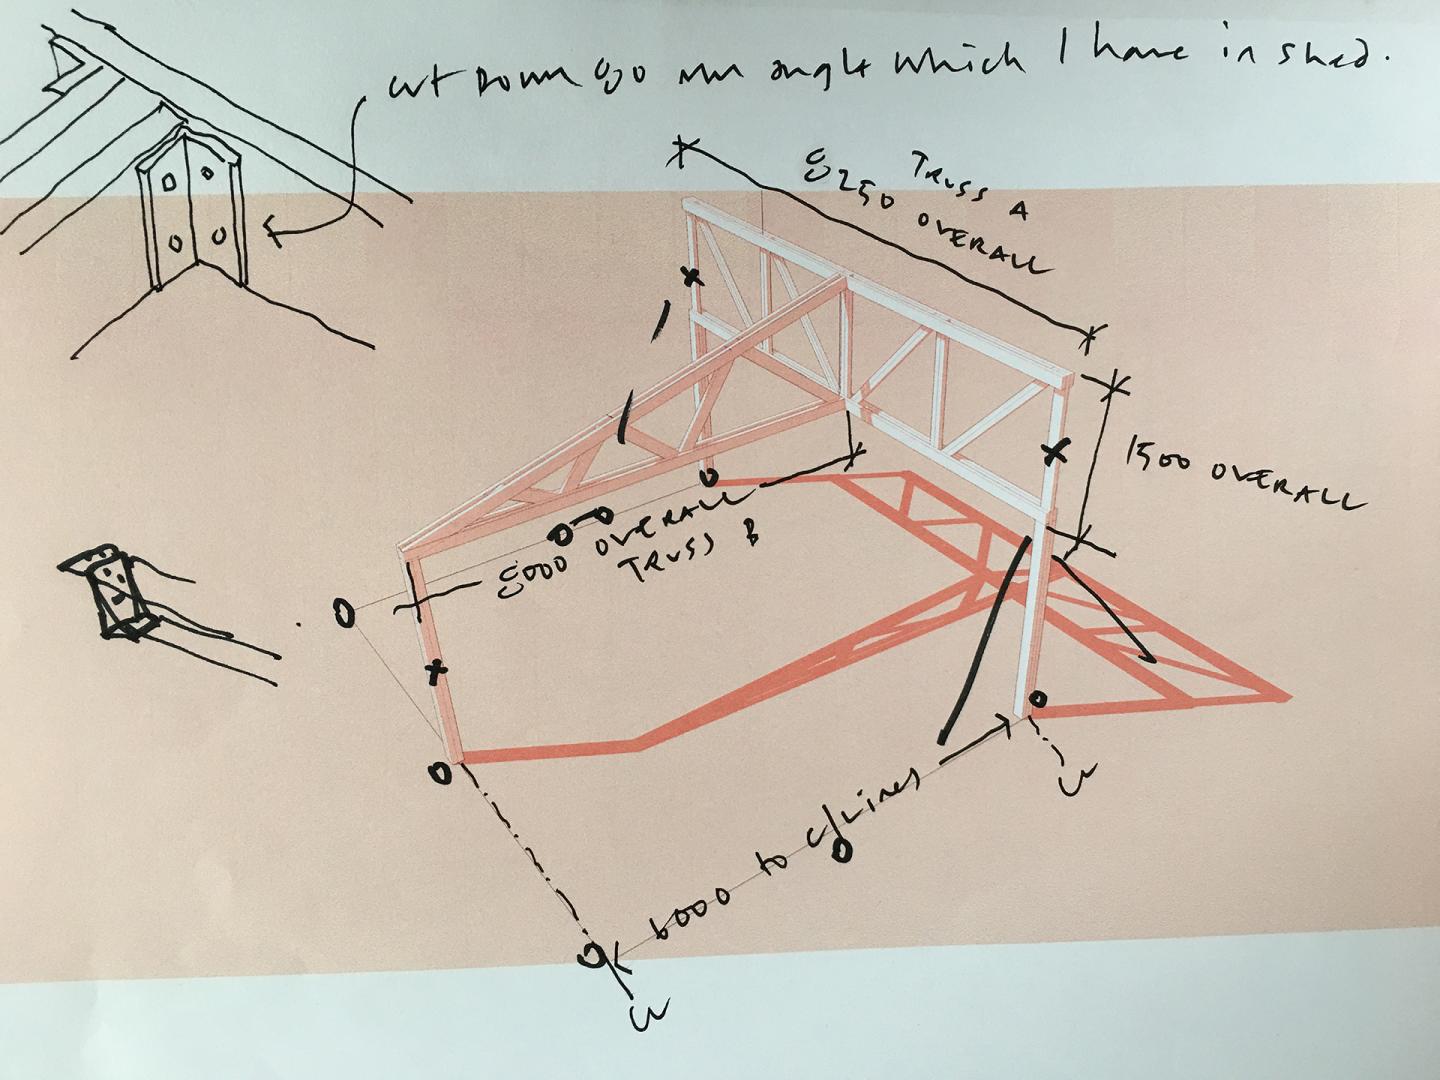 cut down 80 mm angle which I have in shed.
TRUSS A
8250 OVERALL
1500 OVERALL
8000 OVERALL
TRUSS B
6000 to c/Lines
CL
CL